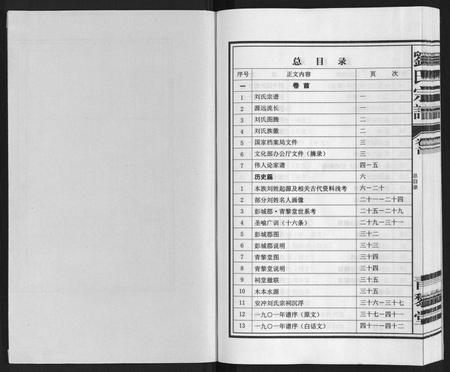 总目录
序号 正文内容 页次
一 卷首
1 刘氏宗谱 一
2 源远流长 一
3 刘氏图腾 二
4 刘氏族徽 二
5 国家档案局文件 三
6 文化部办公厅文件（摘录） 三
7 伟人论家谱 四－五
历史篇 六
1 本族刘姓起源及相关古代资料浅考 六－二十
2 部分刘姓名人画像 二十一－二十四
3 彭城郡·青黎堂世系考 二十五－二十九
4 圣喻广训（十六条） 二十九－三十一
5 彭城郡图 三十二
6 彭城郡说明 三十三
7 青黎堂图 三十四
8 青黎堂说明 三十四
9 祠堂楹联 三十五
10 木本水源 三十五
11 安冲刘氏宗祠沉浮 三十六－三十七
12 一九〇一年谱序（原文） 三十七－四十一
13 一九〇一年谱序（白话文） 四十一－四十二
劉氏宗譜
卷首
总目录
青黎堂